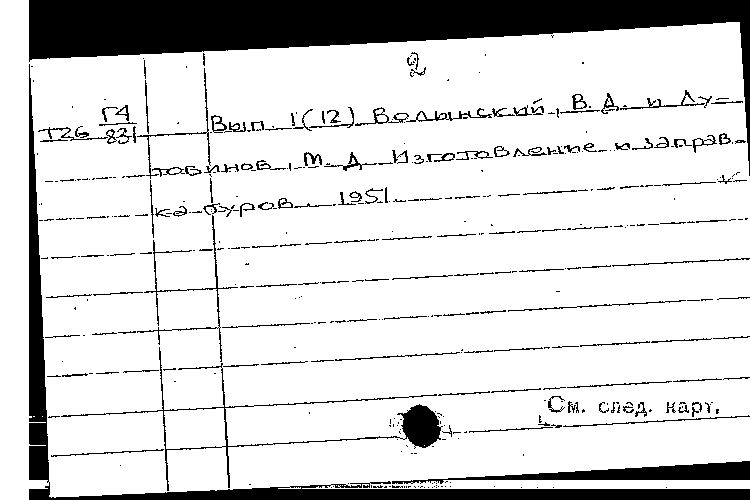 2
Г4
Т26 831 Вып. 1(12) Волынский, В. Д. и Лу-
товинов, М. Д. Изготовление и заправ-
ка буров. 1951.
См. след. карт.